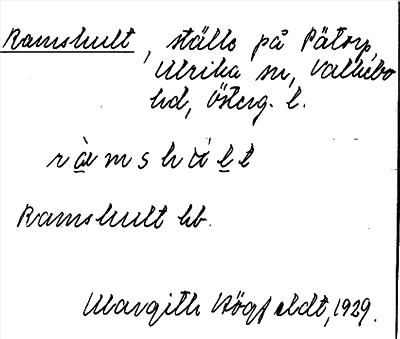 Ramshult, ställe på Pätorp,
Ulrika sn, Valkebo
hd, Österg. l.
ràmshúlt
Ramshult hb.
Margith Högfeldt, 1929.